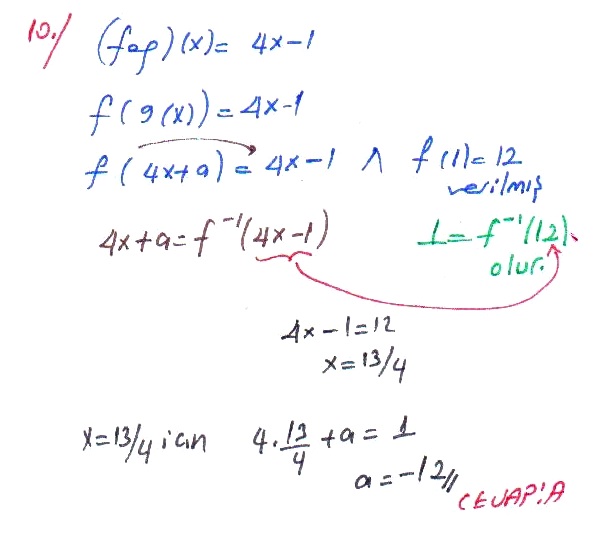 10./ (fog)(x) = 4x-1
f(g(x)) = 4x-1
f(4x+a) = 4x-1 ∧ f(1) = 12
verilmiş
4x+a = f⁻¹(4x-1) 1 = f⁻¹(12)
olur.
4x-1=12
x=13/4
x=13/4 için 4·13/4 + a = 1
a=-12//
CEVAP:A